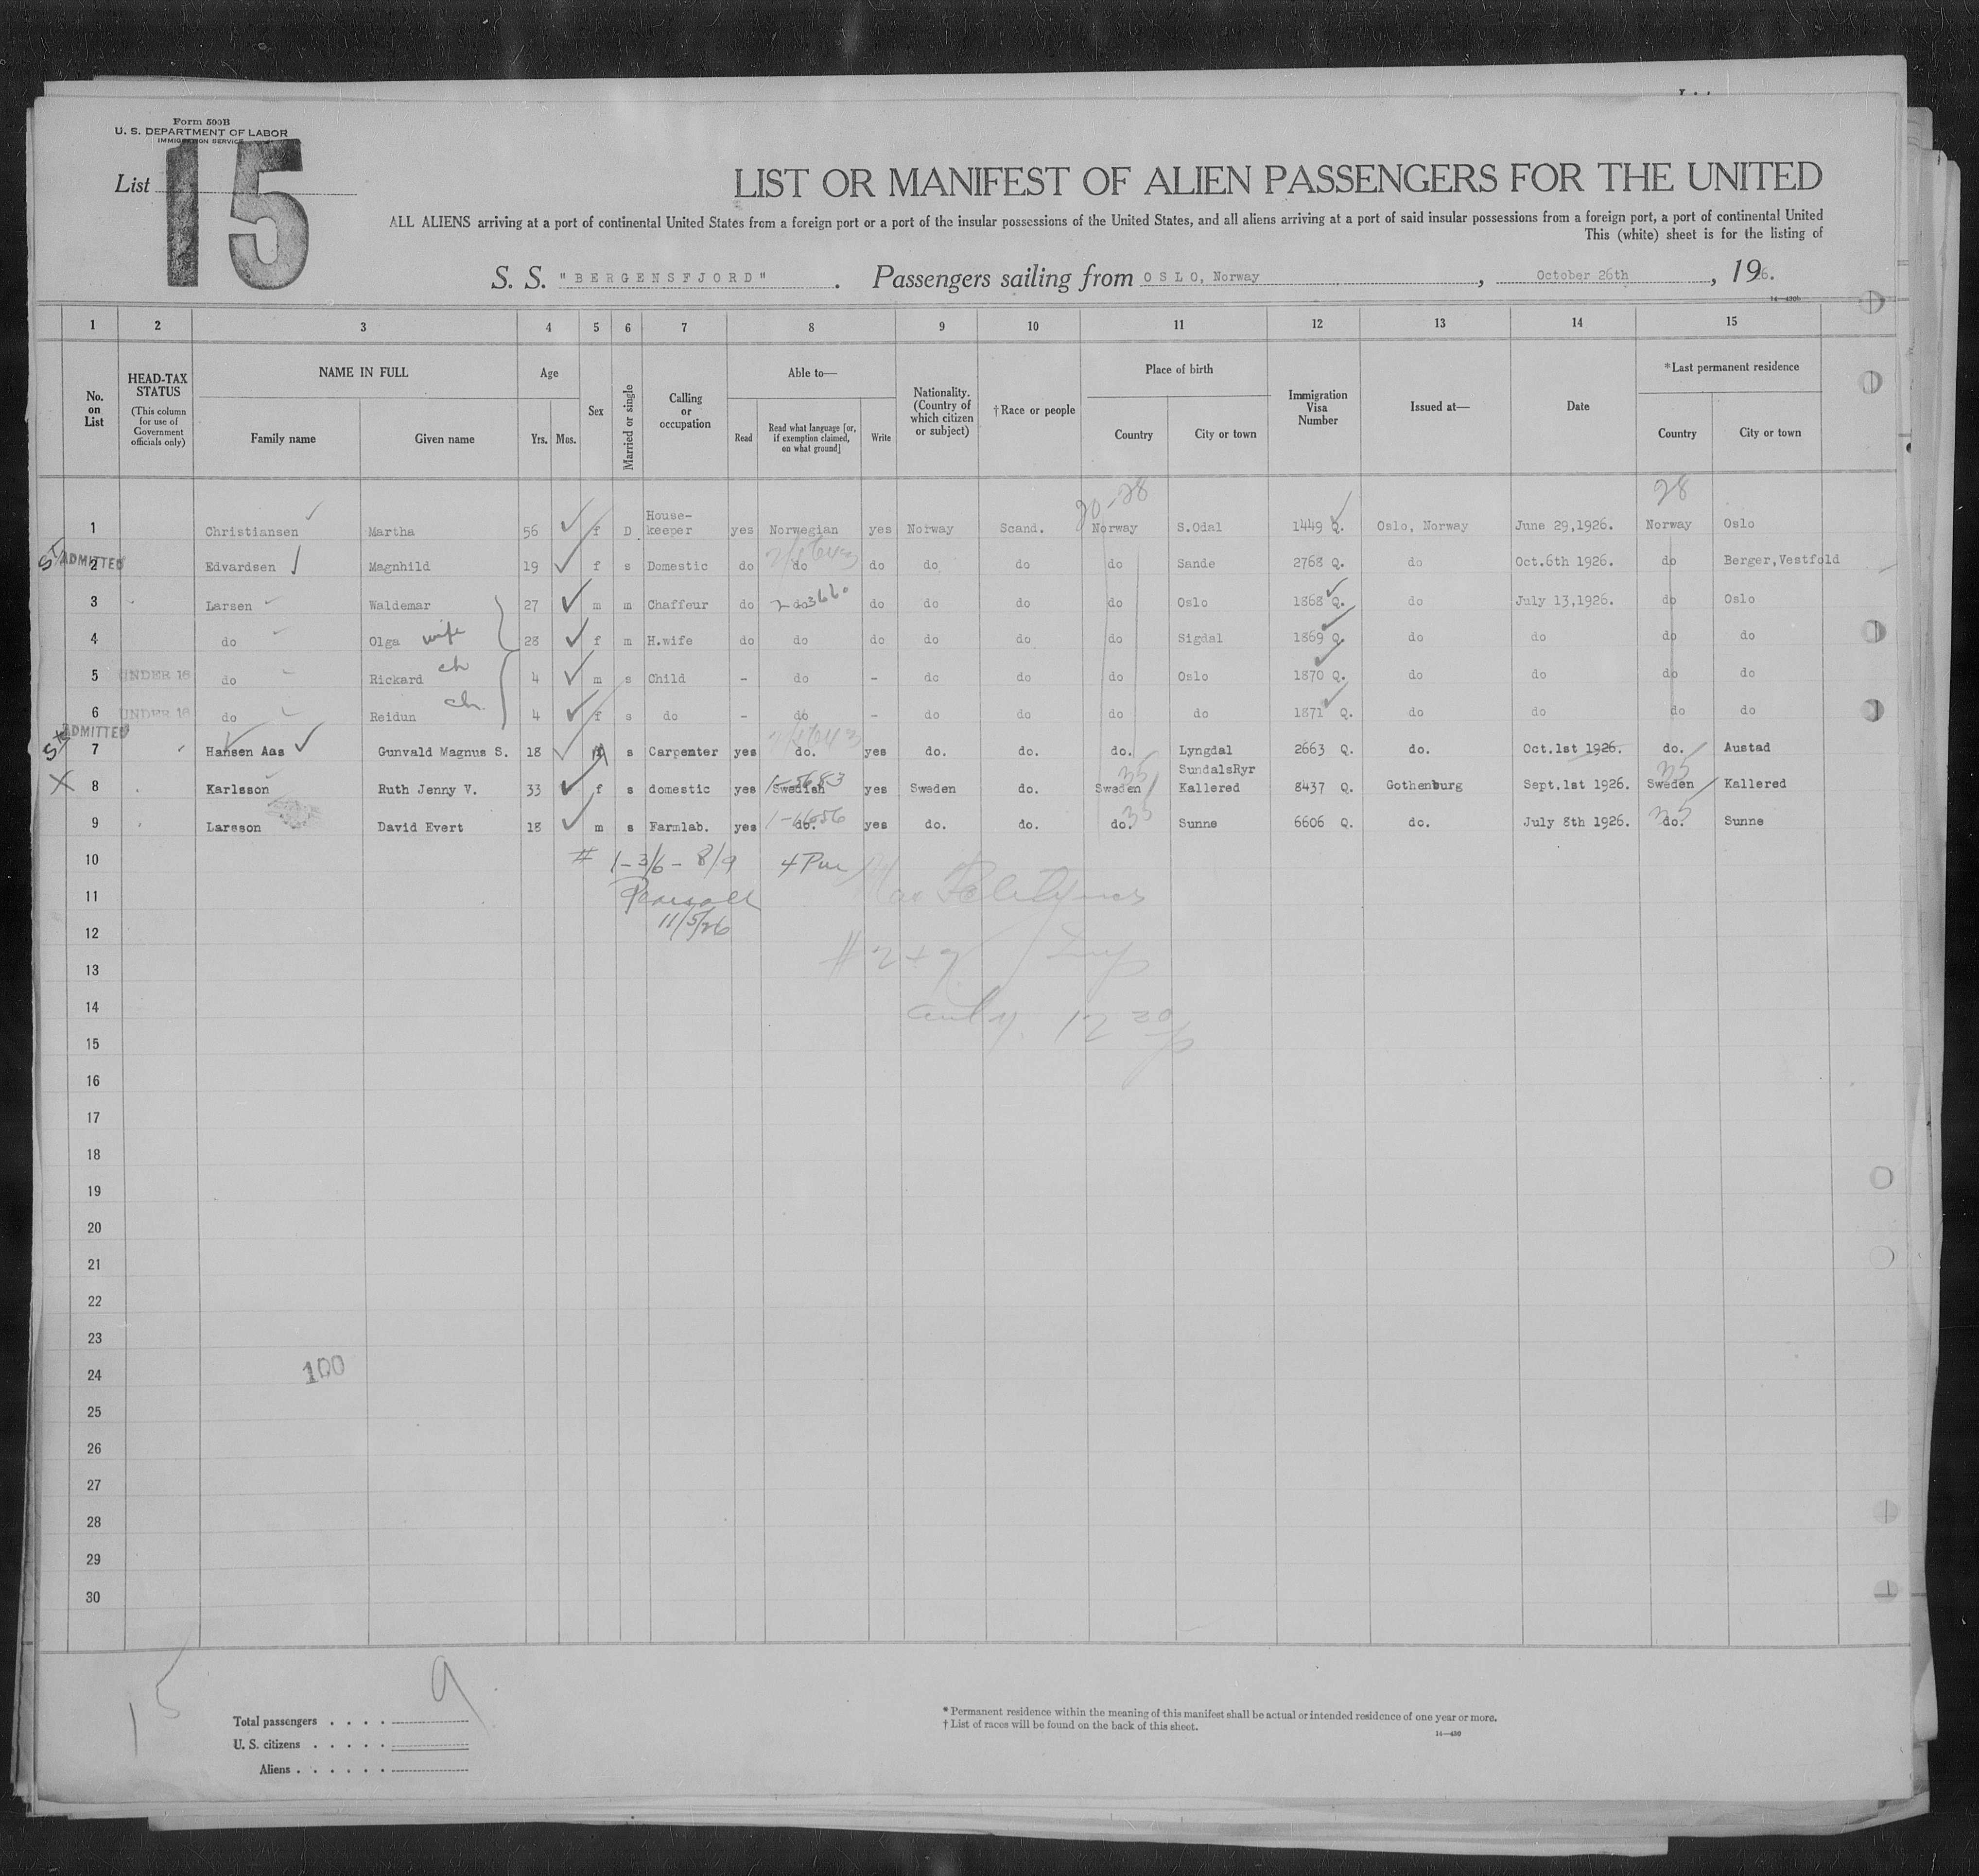 Form 500B
U. S. DEPARTMENT OF LABOR
IMMIGRATION SERVICE
List 15
LIST OR MANIFEST OF ALIEN PASSENGERS FOR THE UNITED
ALL ALIENS arriving at a port of continental United States from a foreign port or a port of the insular possessions of the United States, and all aliens arriving at a port of said insular possessions from a foreign port, a port of continental United
This (white) sheet is for the listing of
S. S. "BERGENSFJORD". Passengers sailing from OSLO, Norway, October 26th, 1926.
1 2 3 4 5 6 7 8 9 10 11 12 13 14 15
No. on List
HEAD-TAX STATUS (This column for use of Government officials only)
NAME IN FULL
Family name Given name
Age
Yrs. Mos.
Sex
Married or single
Calling or occupation
Able to—
Read
Read what language [or, if exemption claimed, on what ground]
Write
Nationality. (Country of which citizen or subject)
†Race or people
Place of birth
Country City or town
Immigration Visa Number
Issued at—
Date
*Last permanent residence
Country City or town
20-28 28
1 Christiansen Martha 56 f D House-keeper yes Norwegian yes Norway Scand. Norway S.Odal 1449 Q. Oslo, Norway June 29,1926. Norway Oslo
ADMITTED
2 Edvardsen Magnhild 19 f s Domestic do do do do do do Sande 2768 Q. do Oct.6th 1926. do Berger,Vestfold
3 Larsen Waldemar 27 m m Chaffeur do do do do do do Oslo 1868 Q. do July 13,1926. do Oslo
4 do Olga wife 28 f m H.wife do do do do do do Sigdal 1869 Q. do do do do
5 UNDER 16 do Rickard ch 4 m s Child - do - do do do Oslo 1870 Q. do do do do
6 UNDER 16 do Reidun ch. 4 f s do - do - do do do do 1871 Q. do do do do
ADMITTED
7 Hansen Aas Gunvald Magnus S. 18 m s Carpenter yes do. yes do. do. do. Lyngdal 2663 Q. do. Oct.1st 1926. do. Austad
8 Karlsson Ruth Jenny V. 33 f s domestic yes Swedish yes Sweden do. Sweden SundalsRyr Kallered 8437 Q. Gothenburg Sept.1st 1926. Sweden Kallered
9 Larsson David Evert 18 m s Farmlab. yes do. yes do. do. do. Sunne 6606 Q. do. July 8th 1926. do. Sunne
10 # 1-3/6-8/9
11
12 11/5/26
13
14
15
16
17
18
19
20
21
22
23
24 100
25
26
27
28
29
30
15
9
Total passengers
U. S. citizens
Aliens
* Permanent residence within the meaning of this manifest shall be actual or intended residence of one year or more.
† List of races will be found on the back of this sheet.
14—430